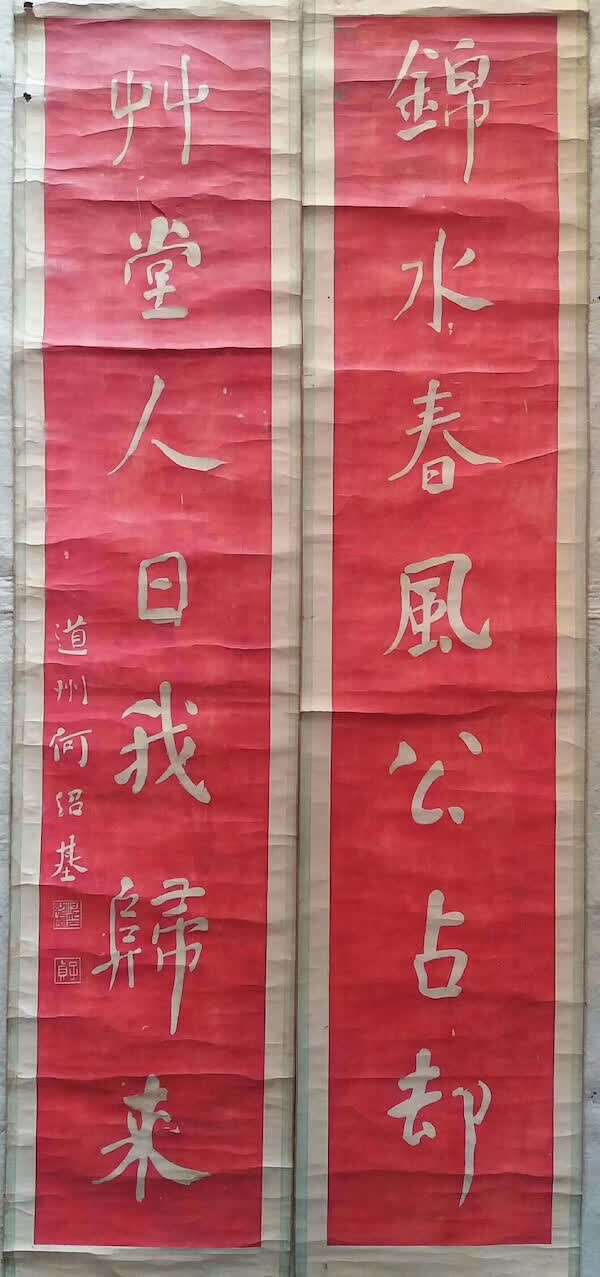 錦水春風公占却
艸堂人日我歸来
道州何紹基
子貞